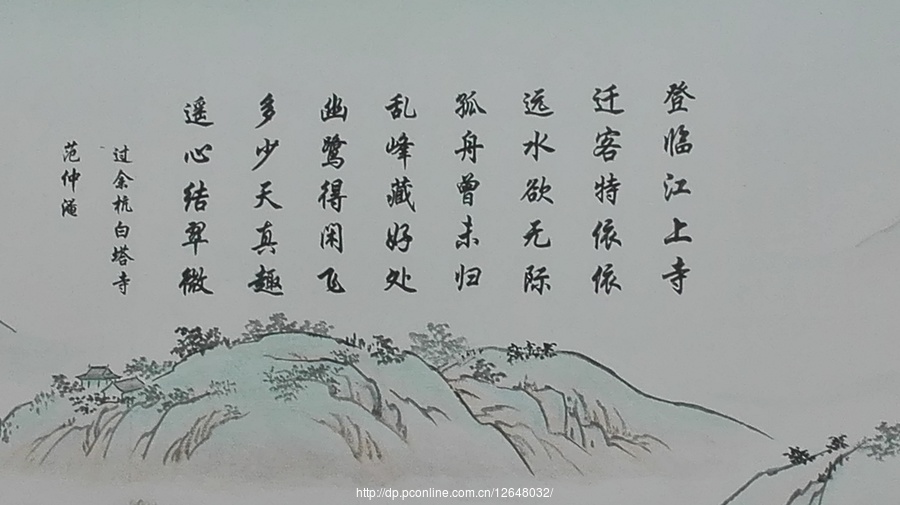 登临江上寺
迁客特依依
远水欲无际
孤舟曾未归
乱峰藏好处
幽鹭得闲飞
多少天真趣
遥心结翠微
过余杭白塔寺
范仲淹
http://dp.pconline.com.cn/12648032/